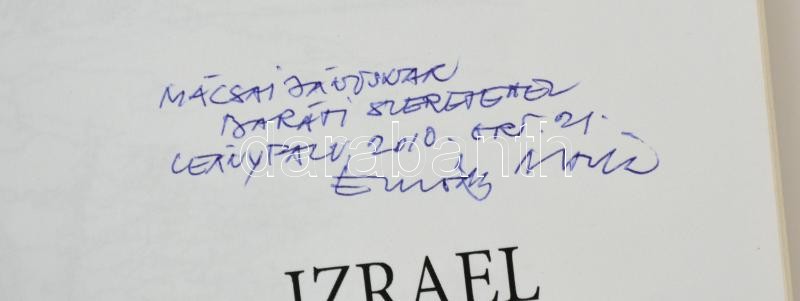 MÁCSAI JÁNOSNAK
BARÁTI SZERETETTEL
LEÁNYFALU, 2010. OKT. 21.
darabanth
IZRAEL